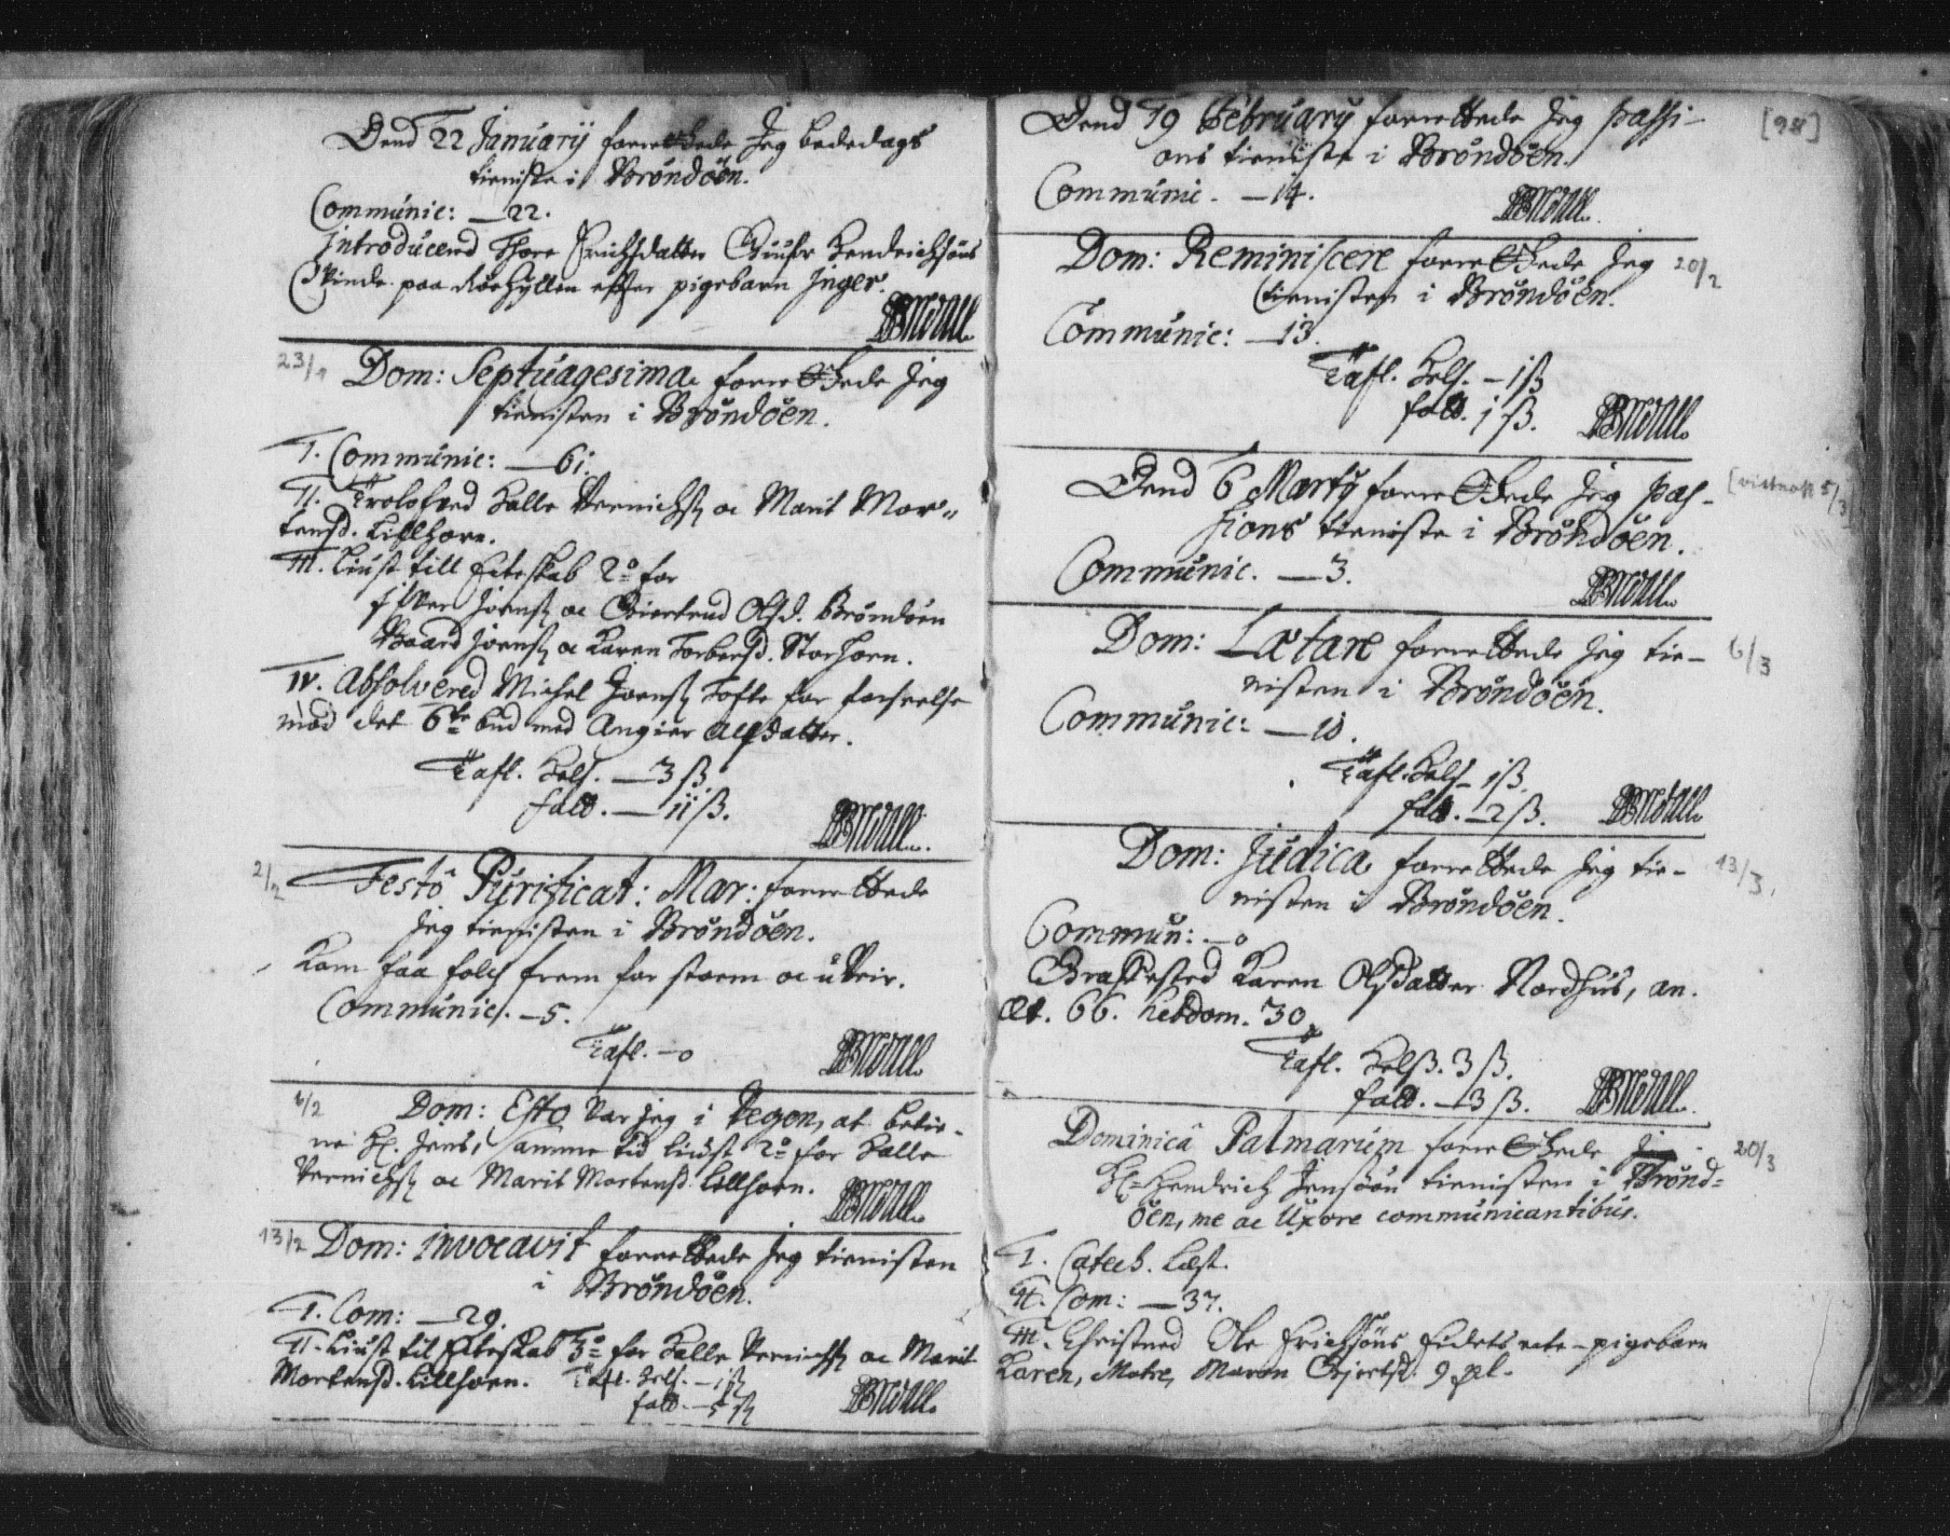 Dend 22 Januarij forrettede Jeg bededags
tieniste i Bröndöen.
Communic: — 22.
Introducerd Thore Erichsdatter Giufr Hendrichsöns
Qvinde paa Röehyllen effter pigebarn Inger.
23/1 Dom: Septuagesimæ forrettede Jeg
tienisten i Bröndöen.
I. Communic: — 61.
II. Trolofved Halle Vernichs: oc Marit Mor„
tensd. Lillhorn.
III. Liust till Ecteskab 2º for
Joens: oc Giertrud Olsd. Bröndöen
Baard Joens: oc Karen Torbersd. Storhorn.
IV. Absolvered Michel Joens: Tofte for forseelse
mod det 6te bud med Angier Alfsdatter.
Tafl. Hels. — 3 ß.
fald. — 11 ß.
2/2 Festô Purificat: Mar: forrettede
Jeg tienisten i Bröndöen.
Kom faa folch frem for storm oc uveir.
Communic. — 5.
Tafl. — 0
6/2 Dom: Esto Var jeg i Vegen, at betie-
ne Hr. Jens, samme tid liust 2º for Halle
Vernichs: oc Marit Mortensd. Lillhorn.
13/2 Dom: Invocavit forrettede Jeg tienisten
i Bröndöen.
I. Com: — 29.
II. Liust til Ecteskab 3º for Halle Vernichs: oc Marit
Mortensd. Lillhorn. Tafl. Hels. — 1 ß
fald. — 5 ß
[98]
Dend 19 February forrettede Jeg passi-
ons tieniste i Bröndöen.
Communic. — 14.
Dom: Reminiscere forrettede Jeg 20/2
tienisten i Bröndöen.
Communic: — 13.
Tafl. Hels. — 1 ß
fald. 1 ß.
Dend 6 Martij forrettede Jeg pas- [vistnok 5/3]
sions tieniste i Bröndöen.
Communic. — 3.
Dom: Lætare forrettede Jeg tie- 6/3
nisten i Bröndöen.
Communic: — 10.
Tafl. Hels — 1 ß.
fald. — 2 ß.
Dom: Judica forrettede Jeg tie- 13/3
nisten i Bröndöen.
Commun: — 0
Graffested Karen Olsdatter Nordhus, an.
æt. 66. hebdom. 30
Tafl. Helß. 3 ß.
fald. — 13 ß.
Dominicâ Palmarum forrettede 20/3
Hr. Hendrich Jensöön tienisten i Brönd=
öen, me ac Uxore communicantibus.
I. Catech. Læst.
II. Com: — 37.
III. Christned Ole Erichsöns ecte-pigebarn
Karen, Matre, Maren 9 pl.